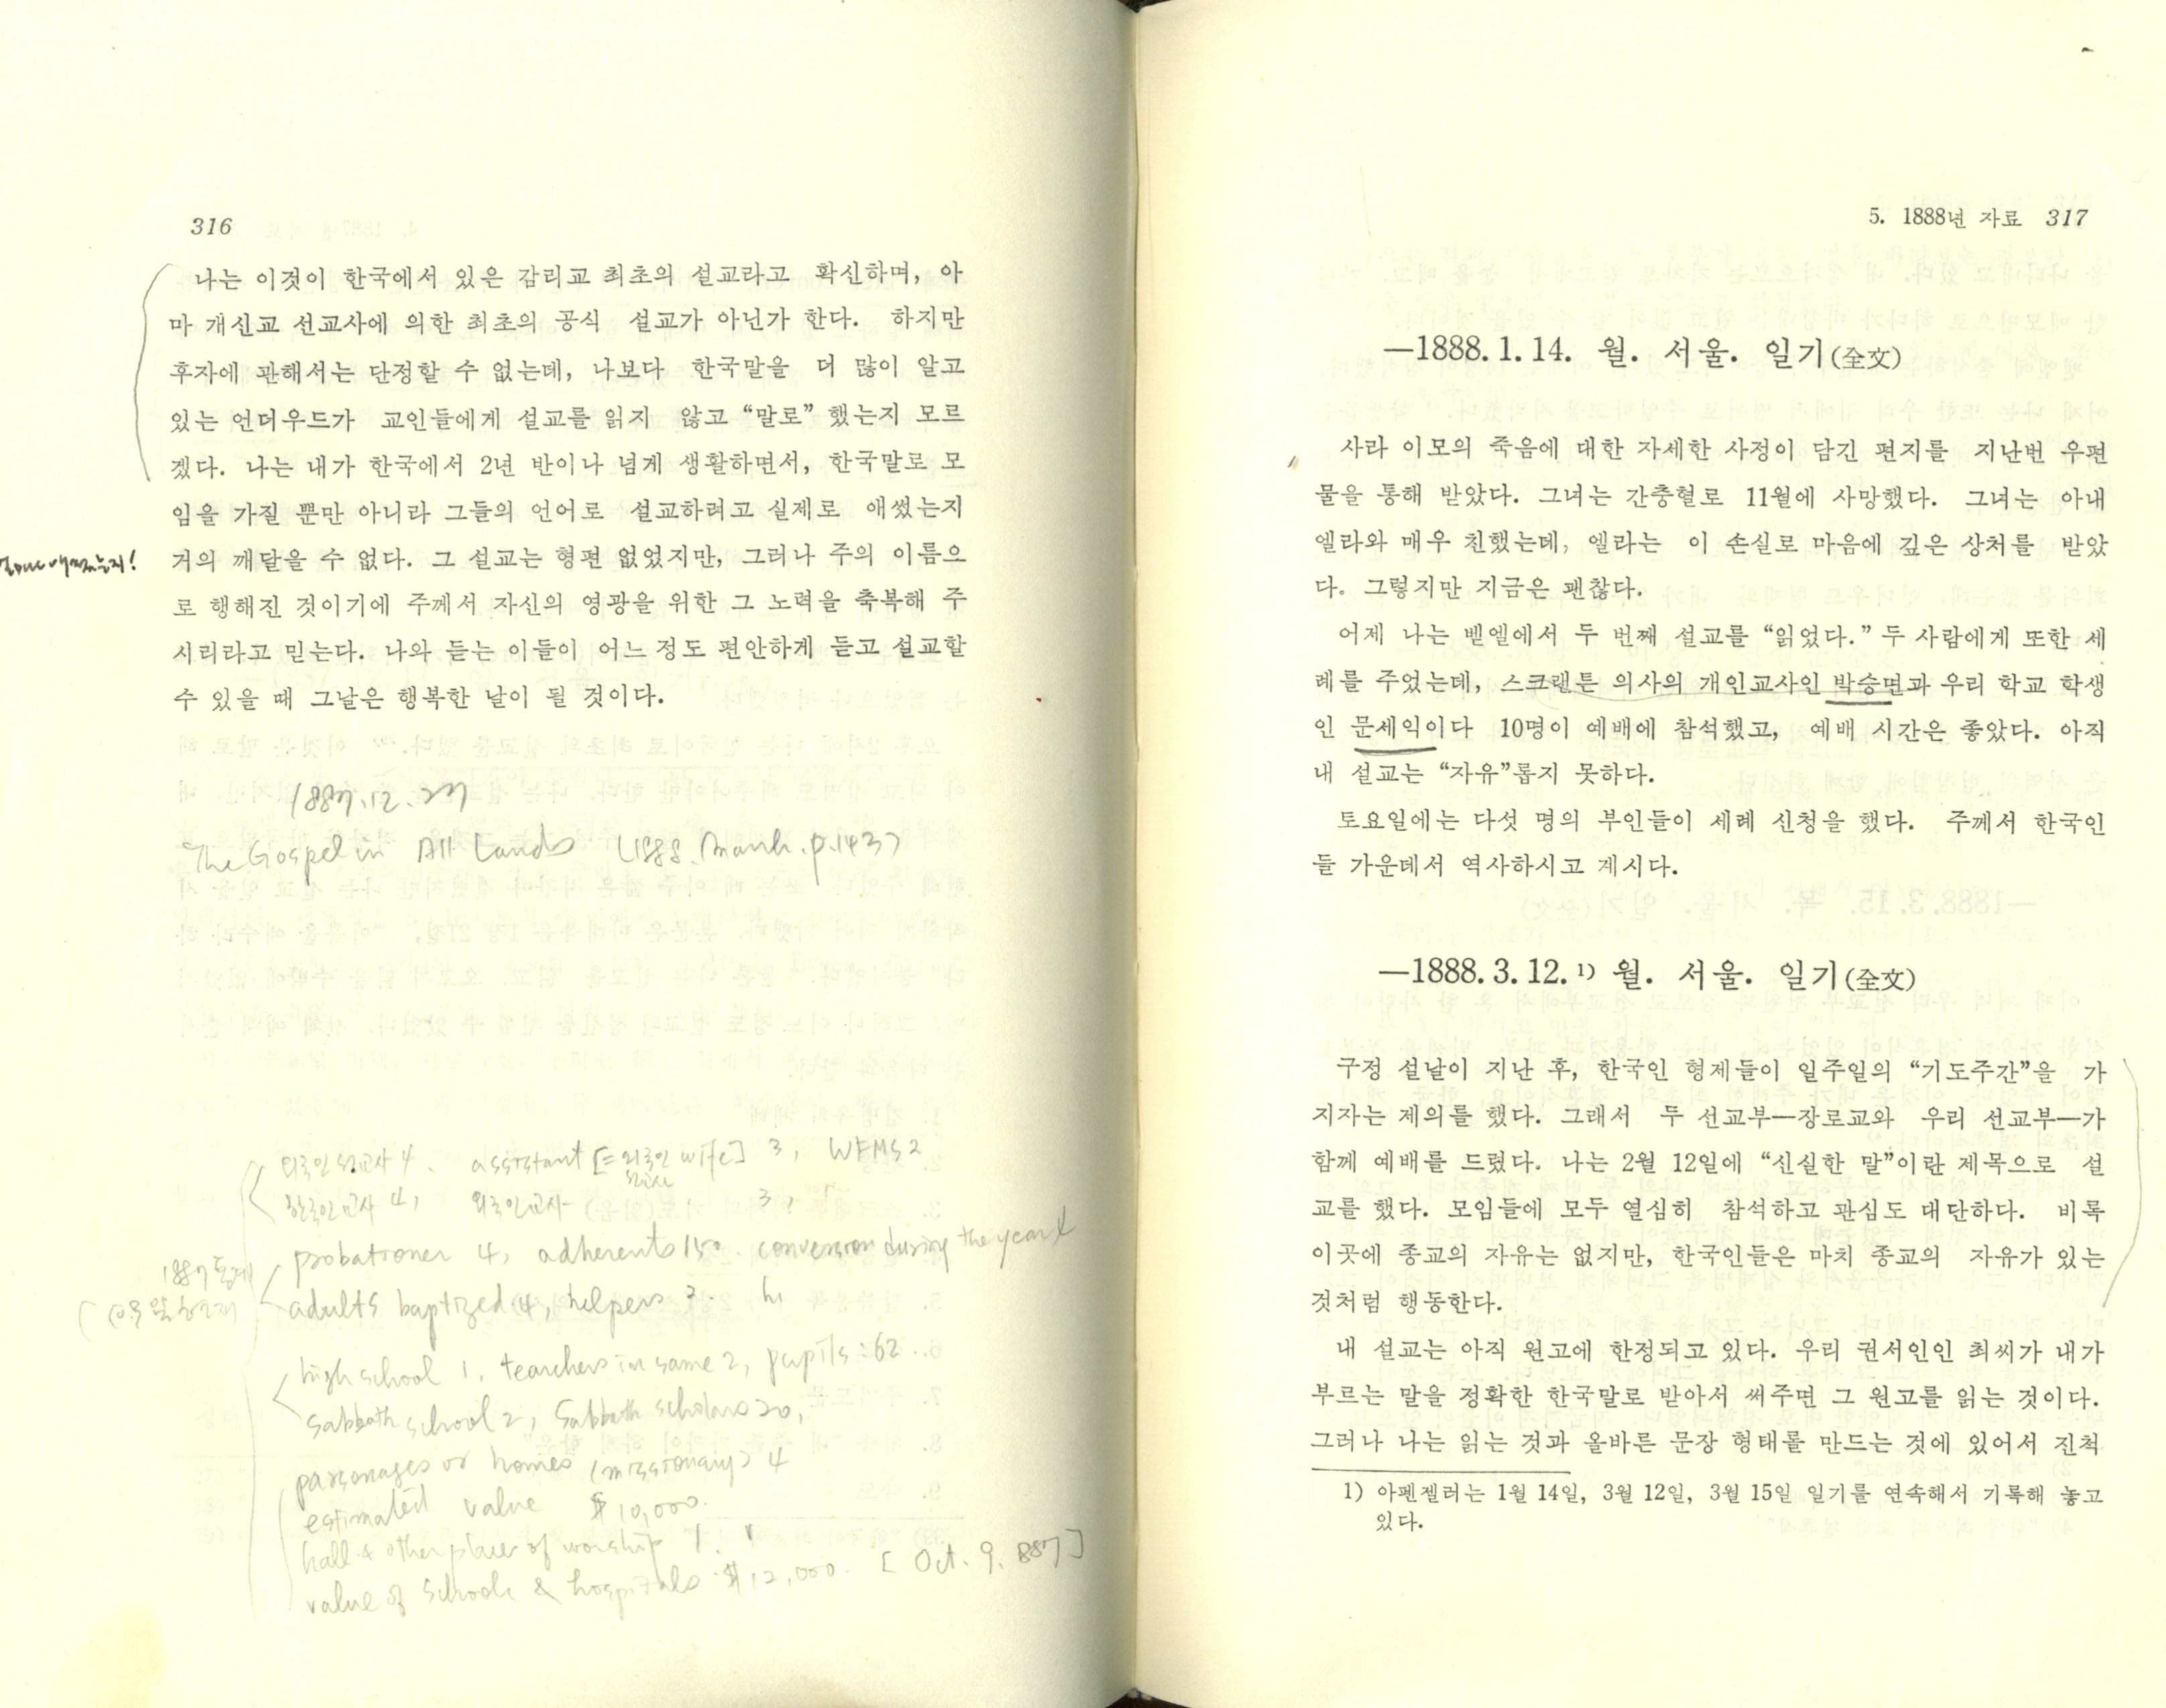 316
나는 이것이 한국에서 있은 감리교 최초의 설교라고 확신하며, 아
마 개신교 선교사에 의한 최초의 공식 설교가 아닌가 한다. 하지만
후자에 관해서는 단정할 수 없는데, 나보다 한국말을 더 많이 알고
있는 언더우드가 교인들에게 설교를 읽지 않고 “말로” 했는지 모르
겠다. 나는 내가 한국에서 2년 반이나 넘게 생활하면서, 한국말로 모
임을 가질 뿐만 아니라 그들의 언어로 설교하려고 실제로 애썼는지
거의 깨달을 수 없다. 그 설교는 형편 없었지만, 그러나 주의 이름으
로 행해진 것이기에 주께서 자신의 영광을 위한 그 노력을 축복해 주
시리라고 믿는다. 나와 듣는 이들이 어느 정도 편안하게 듣고 설교할
수 있을 때 그날은 행복한 날이 될 것이다.
1887.12.27
The Gospel in All Lands 1888. March. p.143
외국인 선교사 4. assistant [=외국인 wife] 3, WFMS 2
한국인 교사 4, 외국인 교사 3,
probationer 4, adherents 150. conversion during the year 4
adults baptized 4, helpers 3.
1887 통계
high school 1, teachers in same 2, pupils:62
sabbath school 2, Sabbath scholars 20,
parsonages or homes (missionary) 4
estimated value $10,000.
hall & other place of worship 1.
value of schools & hospitals $12,000. [Oct. 9. 887]
5. 1888년 자료 317
—1888. 1. 14. 월. 서울. 일기(全文)
사라 이모의 죽음에 대한 자세한 사정이 담긴 편지를 지난번 우편
물을 통해 받았다. 그녀는 간충혈로 11월에 사망했다. 그녀는 아내
엘라와 매우 친했는데, 엘라는 이 손실로 마음에 깊은 상처를 받았
다. 그렇지만 지금은 괜찮다.
어제 나는 벧엘에서 두 번째 설교를 “읽었다.” 두 사람에게 또한 세
례를 주었는데, 스크랜튼 의사의 개인교사인 박승면과 우리 학교 학생
인 문세익이다 10명이 예배에 참석했고, 예배 시간은 좋았다. 아직
내 설교는 “자유”롭지 못하다.
토요일에는 다섯 명의 부인들이 세례 신청을 했다. 주께서 한국인
들 가운데서 역사하시고 계시다.
—1888. 3. 12.¹⁾ 월. 서울. 일기(全文)
구정 설날이 지난 후, 한국인 형제들이 일주일의 “기도주간”을 가
지자는 제의를 했다. 그래서 두 선교부—장로교와 우리 선교부—가
함께 예배를 드렸다. 나는 2월 12일에 “신실한 말”이란 제목으로 설
교를 했다. 모임들에 모두 열심히 참석하고 관심도 대단하다. 비록
이곳에 종교의 자유는 없지만, 한국인들은 마치 종교의 자유가 있는
것처럼 행동한다.
내 설교는 아직 원고에 한정되고 있다. 우리 권서인인 최씨가 내가
부르는 말을 정확한 한국말로 받아서 써주면 그 원고를 읽는 것이다.
그러나 나는 읽는 것과 올바른 문장 형태를 만드는 것에 있어서 진척
1) 아펜젤러는 1월 14일, 3월 12일, 3월 15일 일기를 연속해서 기록해 놓고
있다.